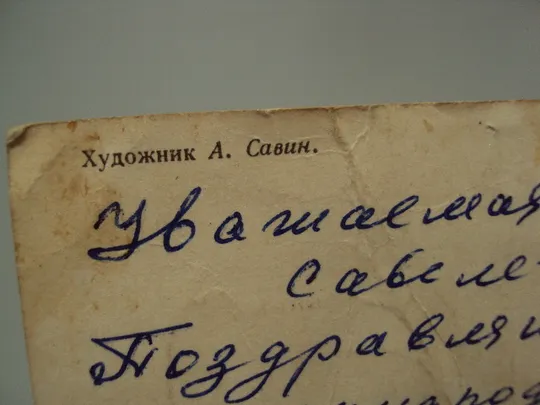 Художник А. Савин.
Уважаемая
Савеле
Поздравля
народ